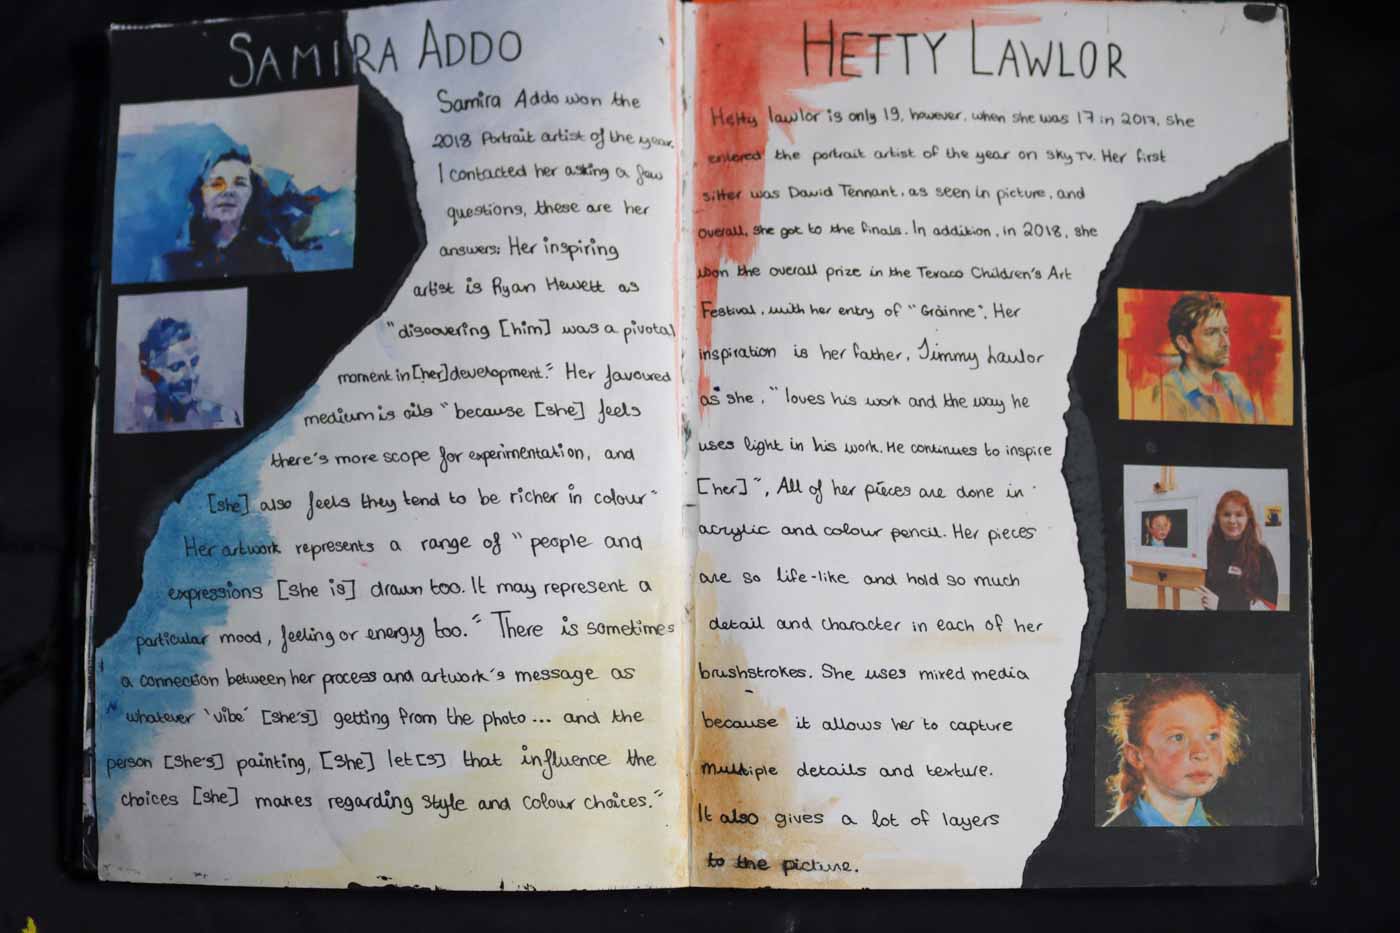 SAMIRA ADDO
Samira Addo won the
2018 Portrait artist of the year.
I contacted her asking a few
questions, these are her
answers: Her inspiring
artist is Ryan Hewett as
"discovering [him] was a pivotal
moment in [her] development." Her favoured
medium is oils "because [she] feels
there's more scope for experimentation, and
[she] also feels they tend to be richer in colour"
Her artwork represents a range of "people and
expressions [she is] drawn too. It may represent a
particular mood, feeling or energy too." There is sometimes
a connection between her process and artwork's message as
whatever 'vibe' [she's] getting from the photo... and the
person [she's] painting, [she] let[s] that influence the
choices [she] makes regarding style and colour choices."
HETTY LAWLOR
Hetty lawlor is only 19, however, when she was 17 in 2017, she
entered the portrait artist of the year on sky TV. Her first
sitter was David Tennant, as seen in picture, and
overall, she got to the finals. In addition, in 2018, she
won the overall prize in the Texaco Children's Art
Festival, with her entry of "Gráinne". Her
inspiration is her father, Jimmy Lawlor
as she, "loves his work and the way he
uses light in his work. He continues to inspire
[her]", All of her pieces are done in
acrylic and colour pencil. Her pieces
are so life-like and hold so much
detail and character in each of her
brushstrokes. She uses mixed media
because it allows her to capture
multiple details and texture.
It also gives a lot of layers
to the picture.